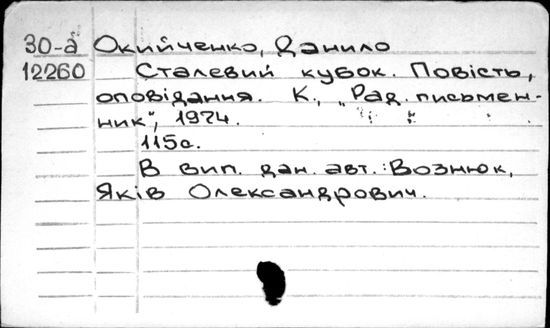 30-а Окийченко, Данило
12260 Сталевий кубок. Повість,
оповідання. К., „Рад. письмен-
ник", 1974.
115с.
В вип. дан. авт.: Вознюк,
Яків Олександрович.